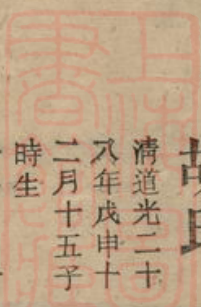 胡氏
清道光二十
八年戊申十
二月十五子
時生